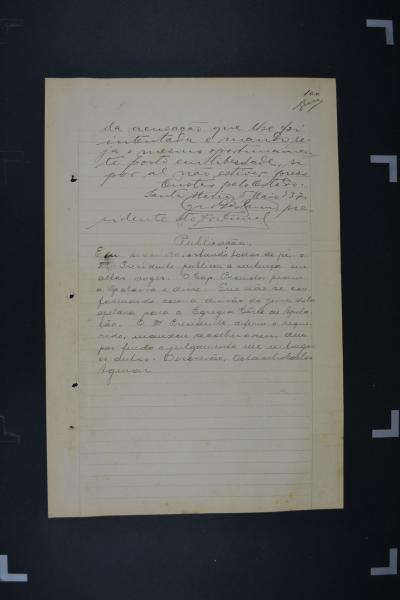 100
da accusação que lhe foi
intentada e mando se-
ja o mesmo opportunamen-
te posto em liberdade, si
por al não estiver preso
Custas pelo Estado.
Santa Maria, Maio 937
pre-
sidente do Tribunal
Publicação.
E em seguida, estando todos de pé, o
Mº Presidente publicou a sentença em
altas vozes. O Cap. Promotor pediu
a palavra e disse: Que não se con-
formando com a decisão do jury della
apelava para a Egregia Côrte de Apela-
ção. O Mº Presidente deferiu o reque-
rido, mandou recolher o reu deu
por findo o julgamento me entregou
os autos. Escrivão,
Aguiar